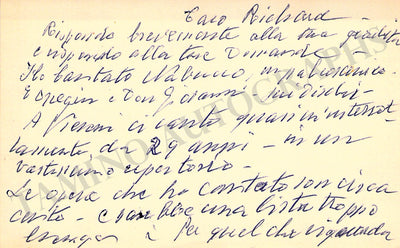 Caro Richard -
Rispondo brevemente alla sua gradita
e rispondo alla sue domande -
Ho cantato Nabucco, in palcoscenico.
E Don Giovanni in dischi -
A Vienna ci canto quasi ininterrot-
tamente da 29 anni - in un
vastissimo repertorio.
Le opere che ho cantato son circa
cento - e una lista troppo
lunga - quel che riguarda
TAMINO AUTOGRAPHS